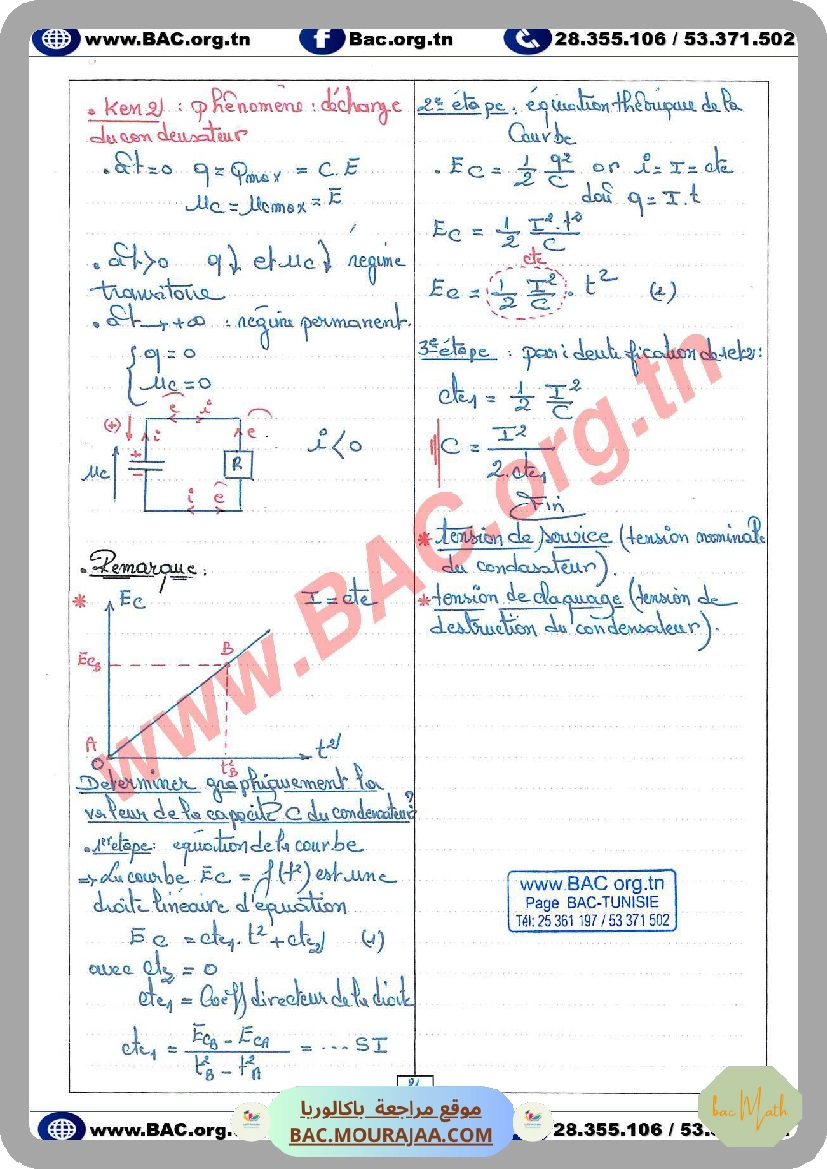 www.BAC.org.tn Bac.org.tn 28.355.106 / 53.371.502
. Ken 2 : phénomène : décharge
du condensateur
. à t=0 q = Qmax = C.E
uc = ucmax = E
. à t>0 q↓ et uc↓ régime
transitoire
. à t → +∞ : régime permanent.
q = 0
uc = 0
(+) i e i e
uc + - R i<0
i e
. Remarque :
* Ec I = cte
EcB B
A
O t²B t²
Determiner graphiquement la
valeur de la capacité C du condensateur?
. 1ère étape : equation de la courbe
⇒ La courbe Ec = f(t²) est une
droite linéaire d'équation
Ec = cte1. t² + cte2 (1)
avec cte2 = 0
cte1 = Coëff directeur de la droite
cte1 = EcB - EcA / t²B - t²A = ... SI
2e étape : équation théorique de la
Courbe
. Ec = 1/2 q²/C or i = I = cte
doù q = I.t
Ec = 1/2 I².t²/C
cte
Ec = 1/2 I²/C . t² (2)
3e étape : par identification de 1 et 2 :
cte1 = 1/2 I²/C
C = I² / 2.cte1
Fin
* tension de service (tension nominale
du condasateur).
* tension de claquage (tension de
destruction du condensateur).
www.BAC.org.tn
www.BAC org.tn
Page BAC-TUNISIE
Tél: 25 361 197 / 53 371 502
موقع مراجعة باكالوريا
BAC.MOURAJAA.COM
bac Math
www.BAC.org. 28.355.106 / 53.